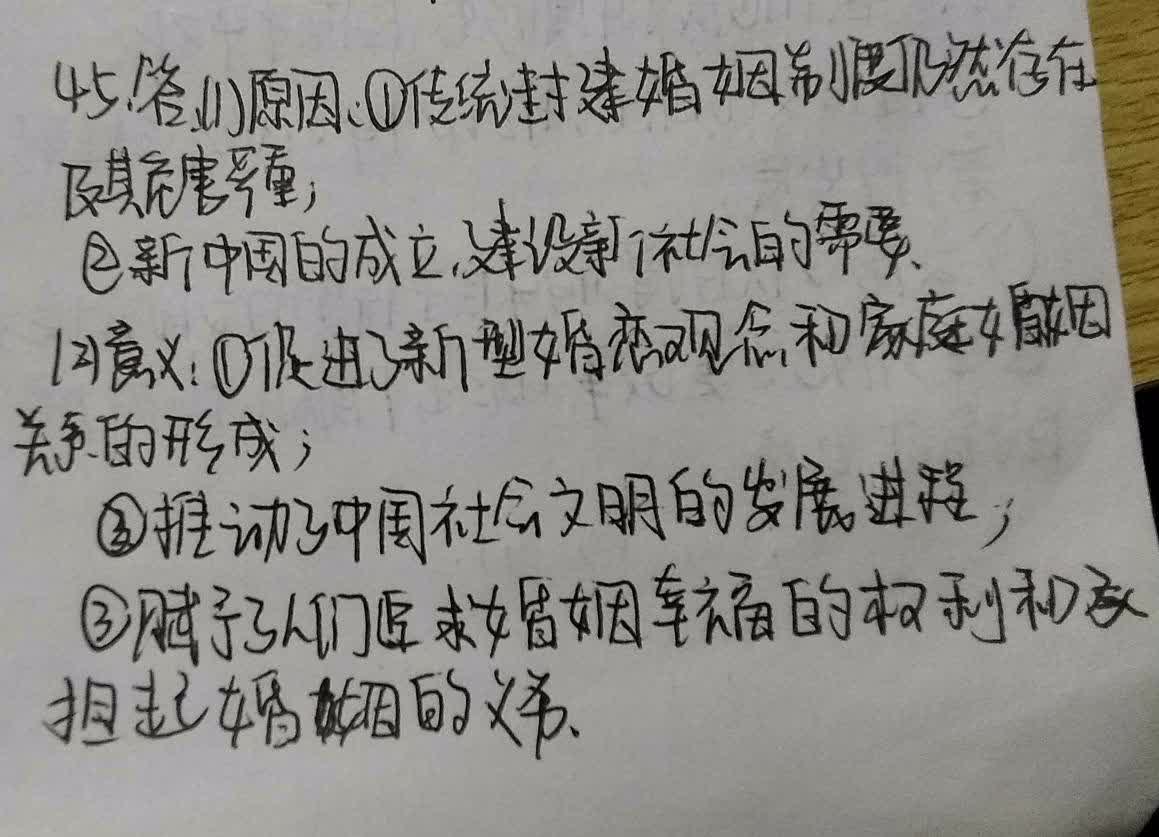 45.答:(1)原因:①传统封建婚姻制度仍然存在
及其危害严重;
②新中国的成立,建设新社会的需要.
(2)意义:①促进了新型婚恋观念和家庭婚姻
关系的形成;
②推动了中国社会文明的发展进程;
③赋予了人们追求婚姻幸福的权利和承
担起婚姻的义务.